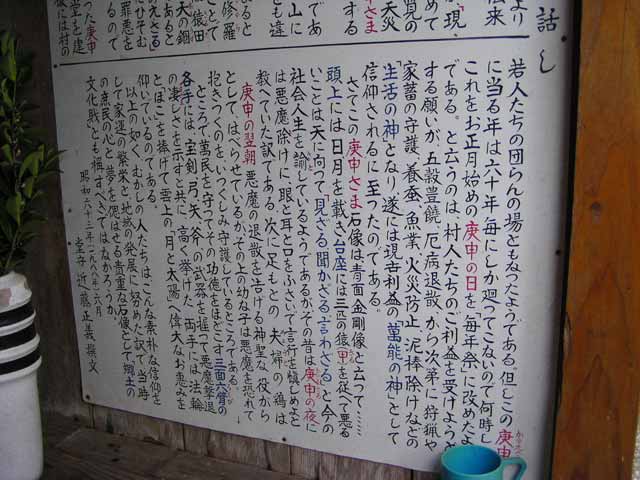 話し
より
伝来
めて
「現、
覚の
天災
さま
する
であ
山に
も違
若人たちの団らんの場ともなったようである。但しこの庚申
に当る年は六十年毎にしか廻ってこないので何時し
これをお正月始めの庚申の日を毎年祭に改めたよ
である。と云うのは、村人たちのご利益を受けようと
する願いが、五穀豊饒、厄病退散、から次第に狩猟や
家蓄の守護、養蚕、魚業、火災防止、泥捧除けなどの
「生活の神」となり遂には現古利益の「萬能の神」として
信仰されるに至ったのである。
さてこの庚申さま石像は青面金剛像と云って……
頭上には日月を載き台座には三匹の猿(甲)を従へて悪る
いことは天に向って見ざる聞かざる言わざると今の
社会人生を諭しているようであるがその昔は庚申の夜に
は悪魔除けに眼と耳と口をふさいで言行を慎しめよと
教へていた訳である。次に足もとの夫婦の鶏は
庚申の翌朝悪魔の退散を告げる神聖な役から
として、はべらせているが、その上の幼な子は悪魔を恐れて
抱きつくのを、いつくしみ守護しているところである。
ところで、萬民を守ってその功徳をほどこす三面六臂の
各手には、宝剣、弓、矢、斧、の武器を握って悪魔撃退
の凄じさを示すと共に、高く挙げた両手には法輪
と「ほこ」を捧げて雲上の月と太陽の偉大なお恵みを
仰いでいるのである。
以上の如く、むかしの人たちは、こんな素朴な信仰を
して家運の繁栄と地域の発展に努めた訳で、当時
の庶民の心と夢を偲ばせる貴重な石像として、郷土の
文化戝とも稱すべきではなかろうか。
昭和六十三年(一九八八年)六月
堂守 近藤正義 撰文